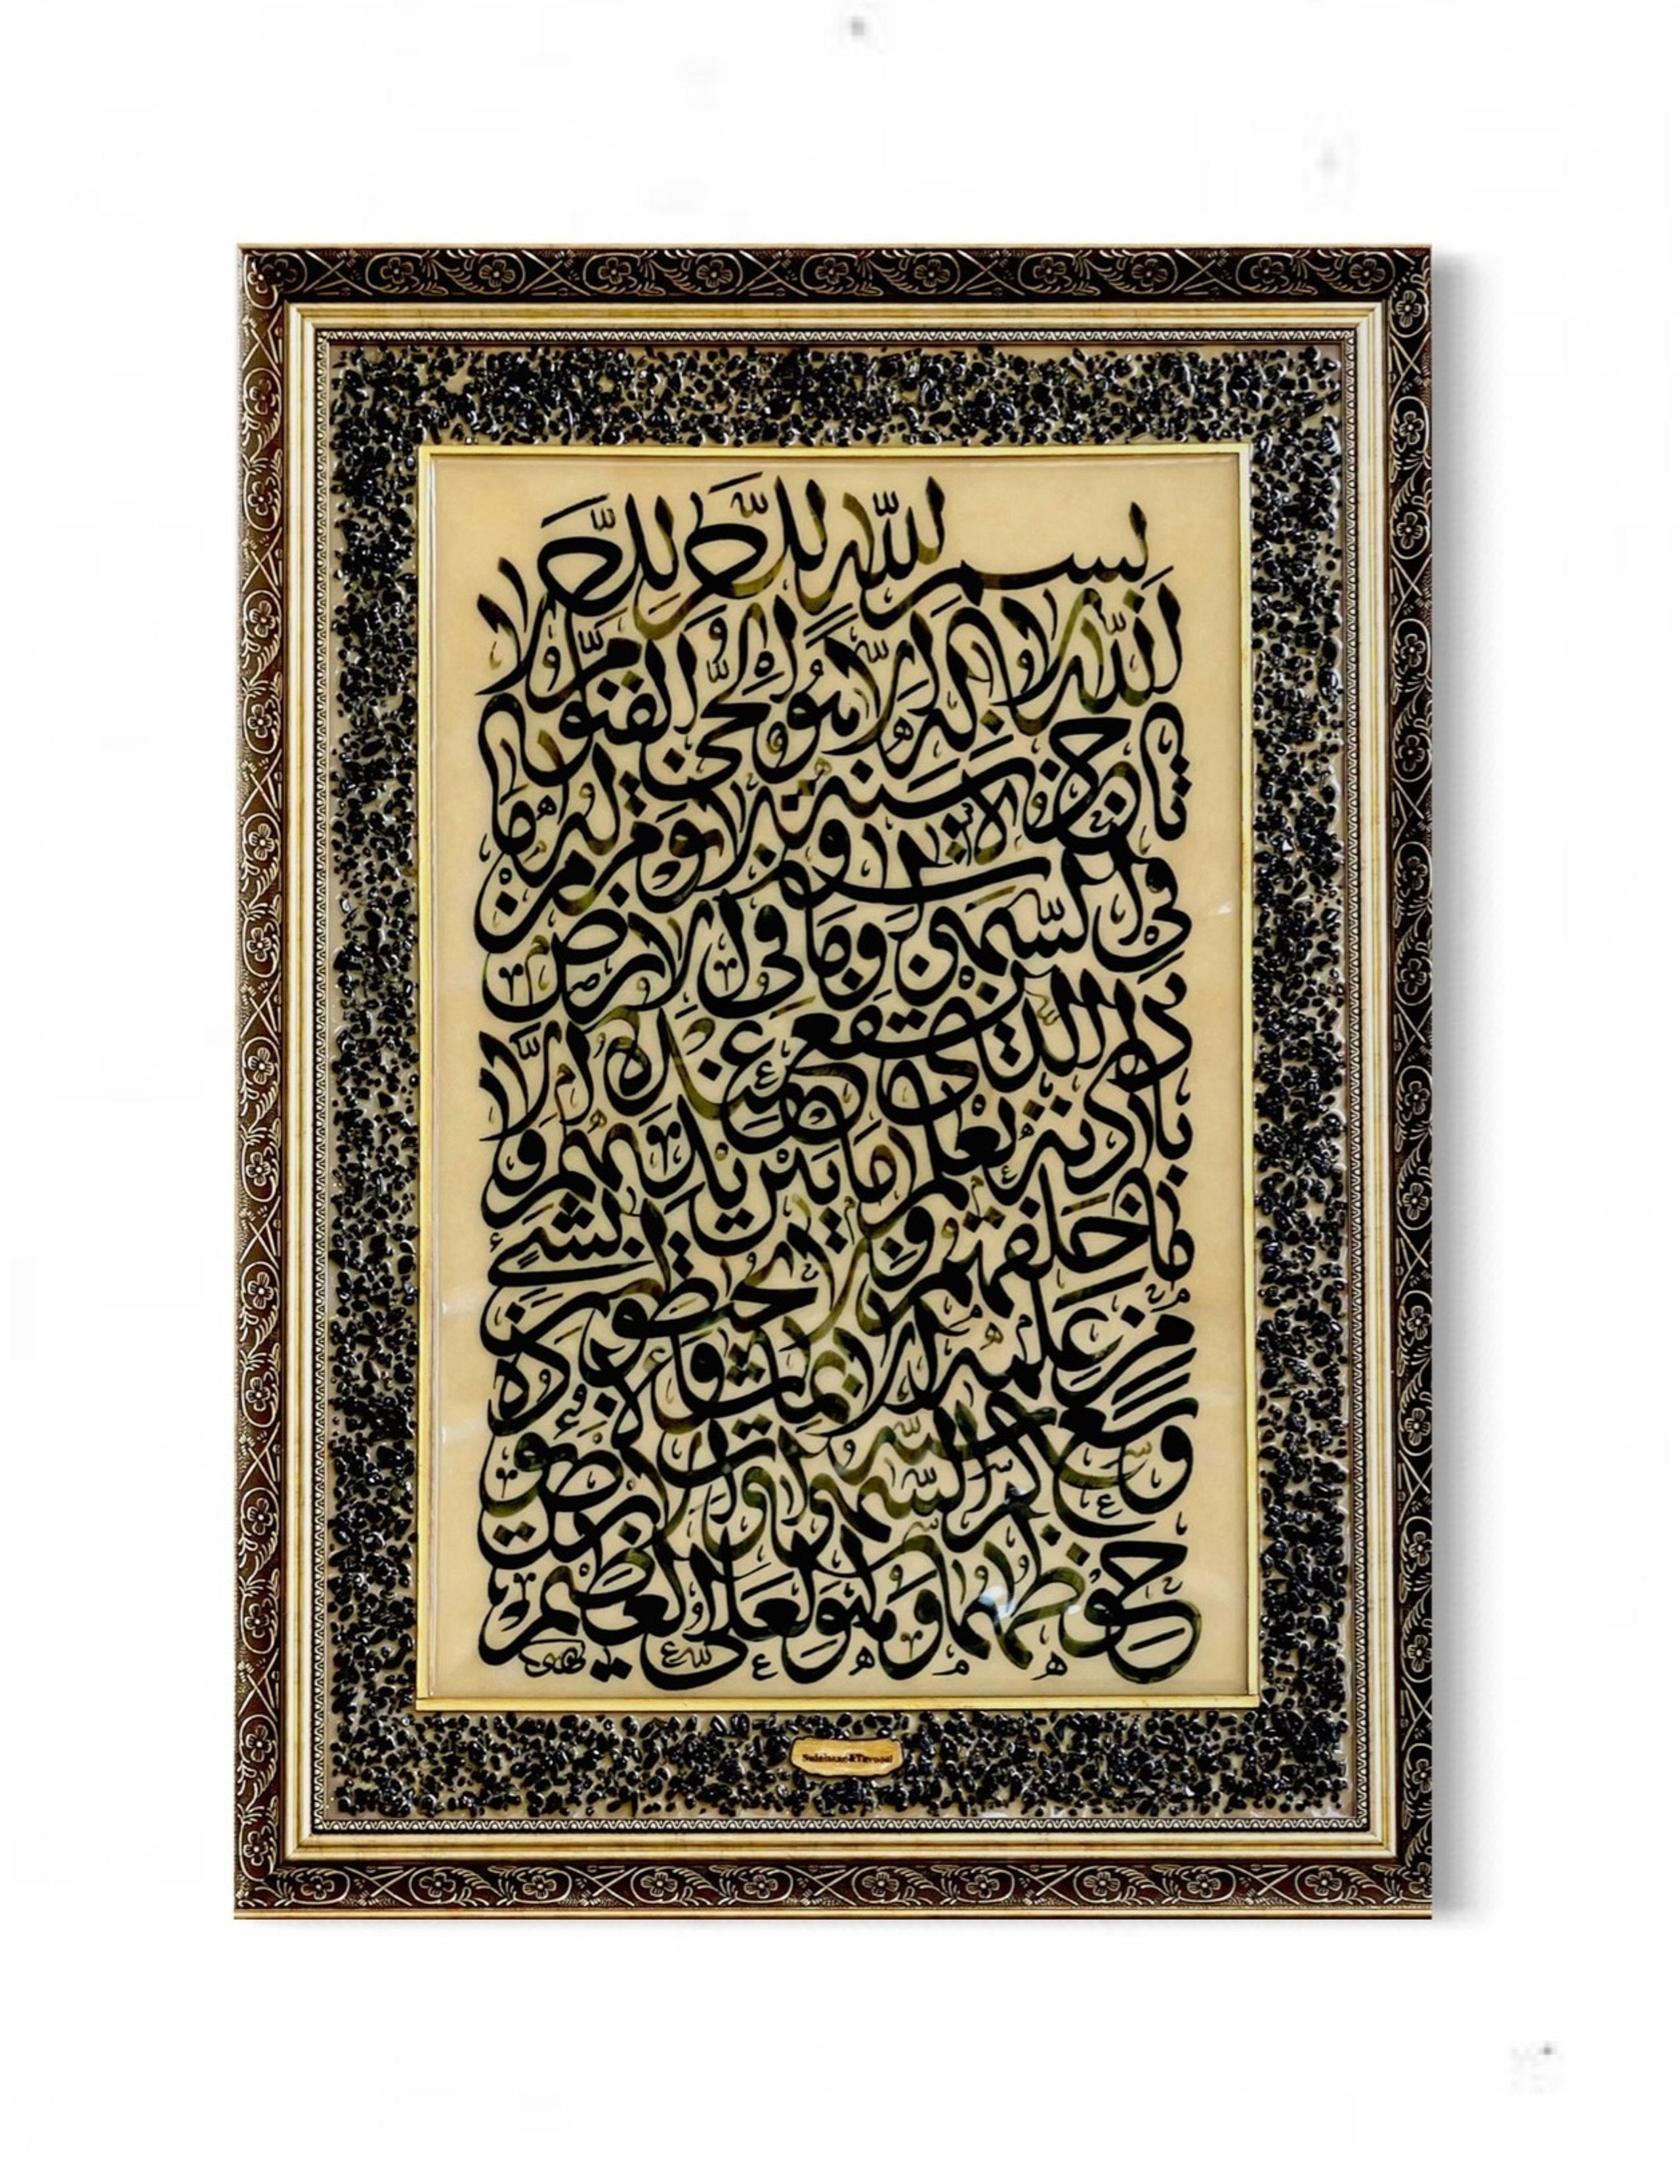 بسم الله الرحمن الرحيم
الله لا اله الا هو الحي القيوم لا
تاخذه سنة ولا نوم له ما
في السموت وما في الارض
من ذا الذي يشفع عنده الا
باذنه يعلم ما بين ايديهم و
ما خلفهم ولا يحيطون بشيء
من علمه الا بما شاء
وسع كرسيه السموت والارض ولا يؤده
حفظهما وهو العلي العظيم